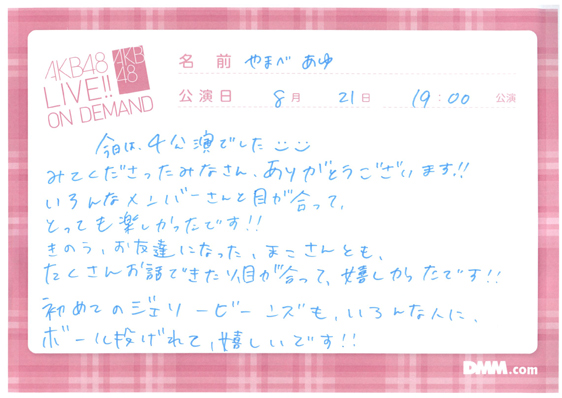 AKB48
LIVE!!
ON DEMAND
AKB
48
名 前 やまべ あゆ
公演日 8月 21日 19:00 公演
今日は、4公演でした
みてくださったみなさん、ありがとうございます!!
いろんなメンバーさんと目が合って、
とっても楽しかったです!!
きのう、お友達になった、まこさんとも、
たくさんお話できたり、目が合って、嬉しかったです!!
初めてのジェリービーンズも、いろんな人に、
ボール投げれて、嬉しいです!!
DMM.com